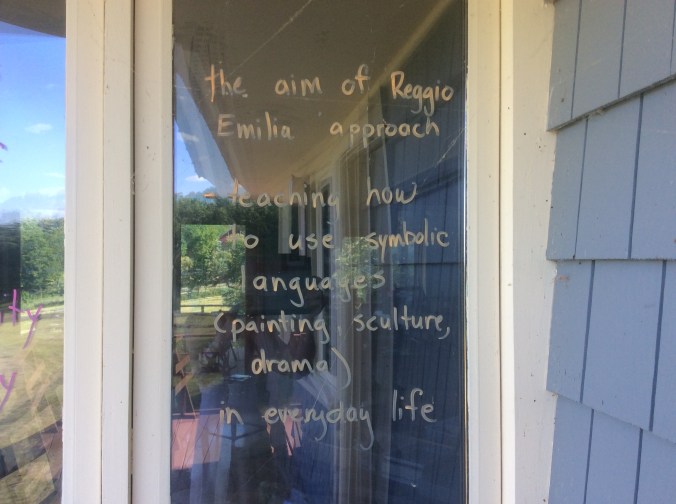 the aim of Reggio
Emilia approach
- teaching how
to use symbolic
languages
(painting, sculture,
drama)
in everyday life